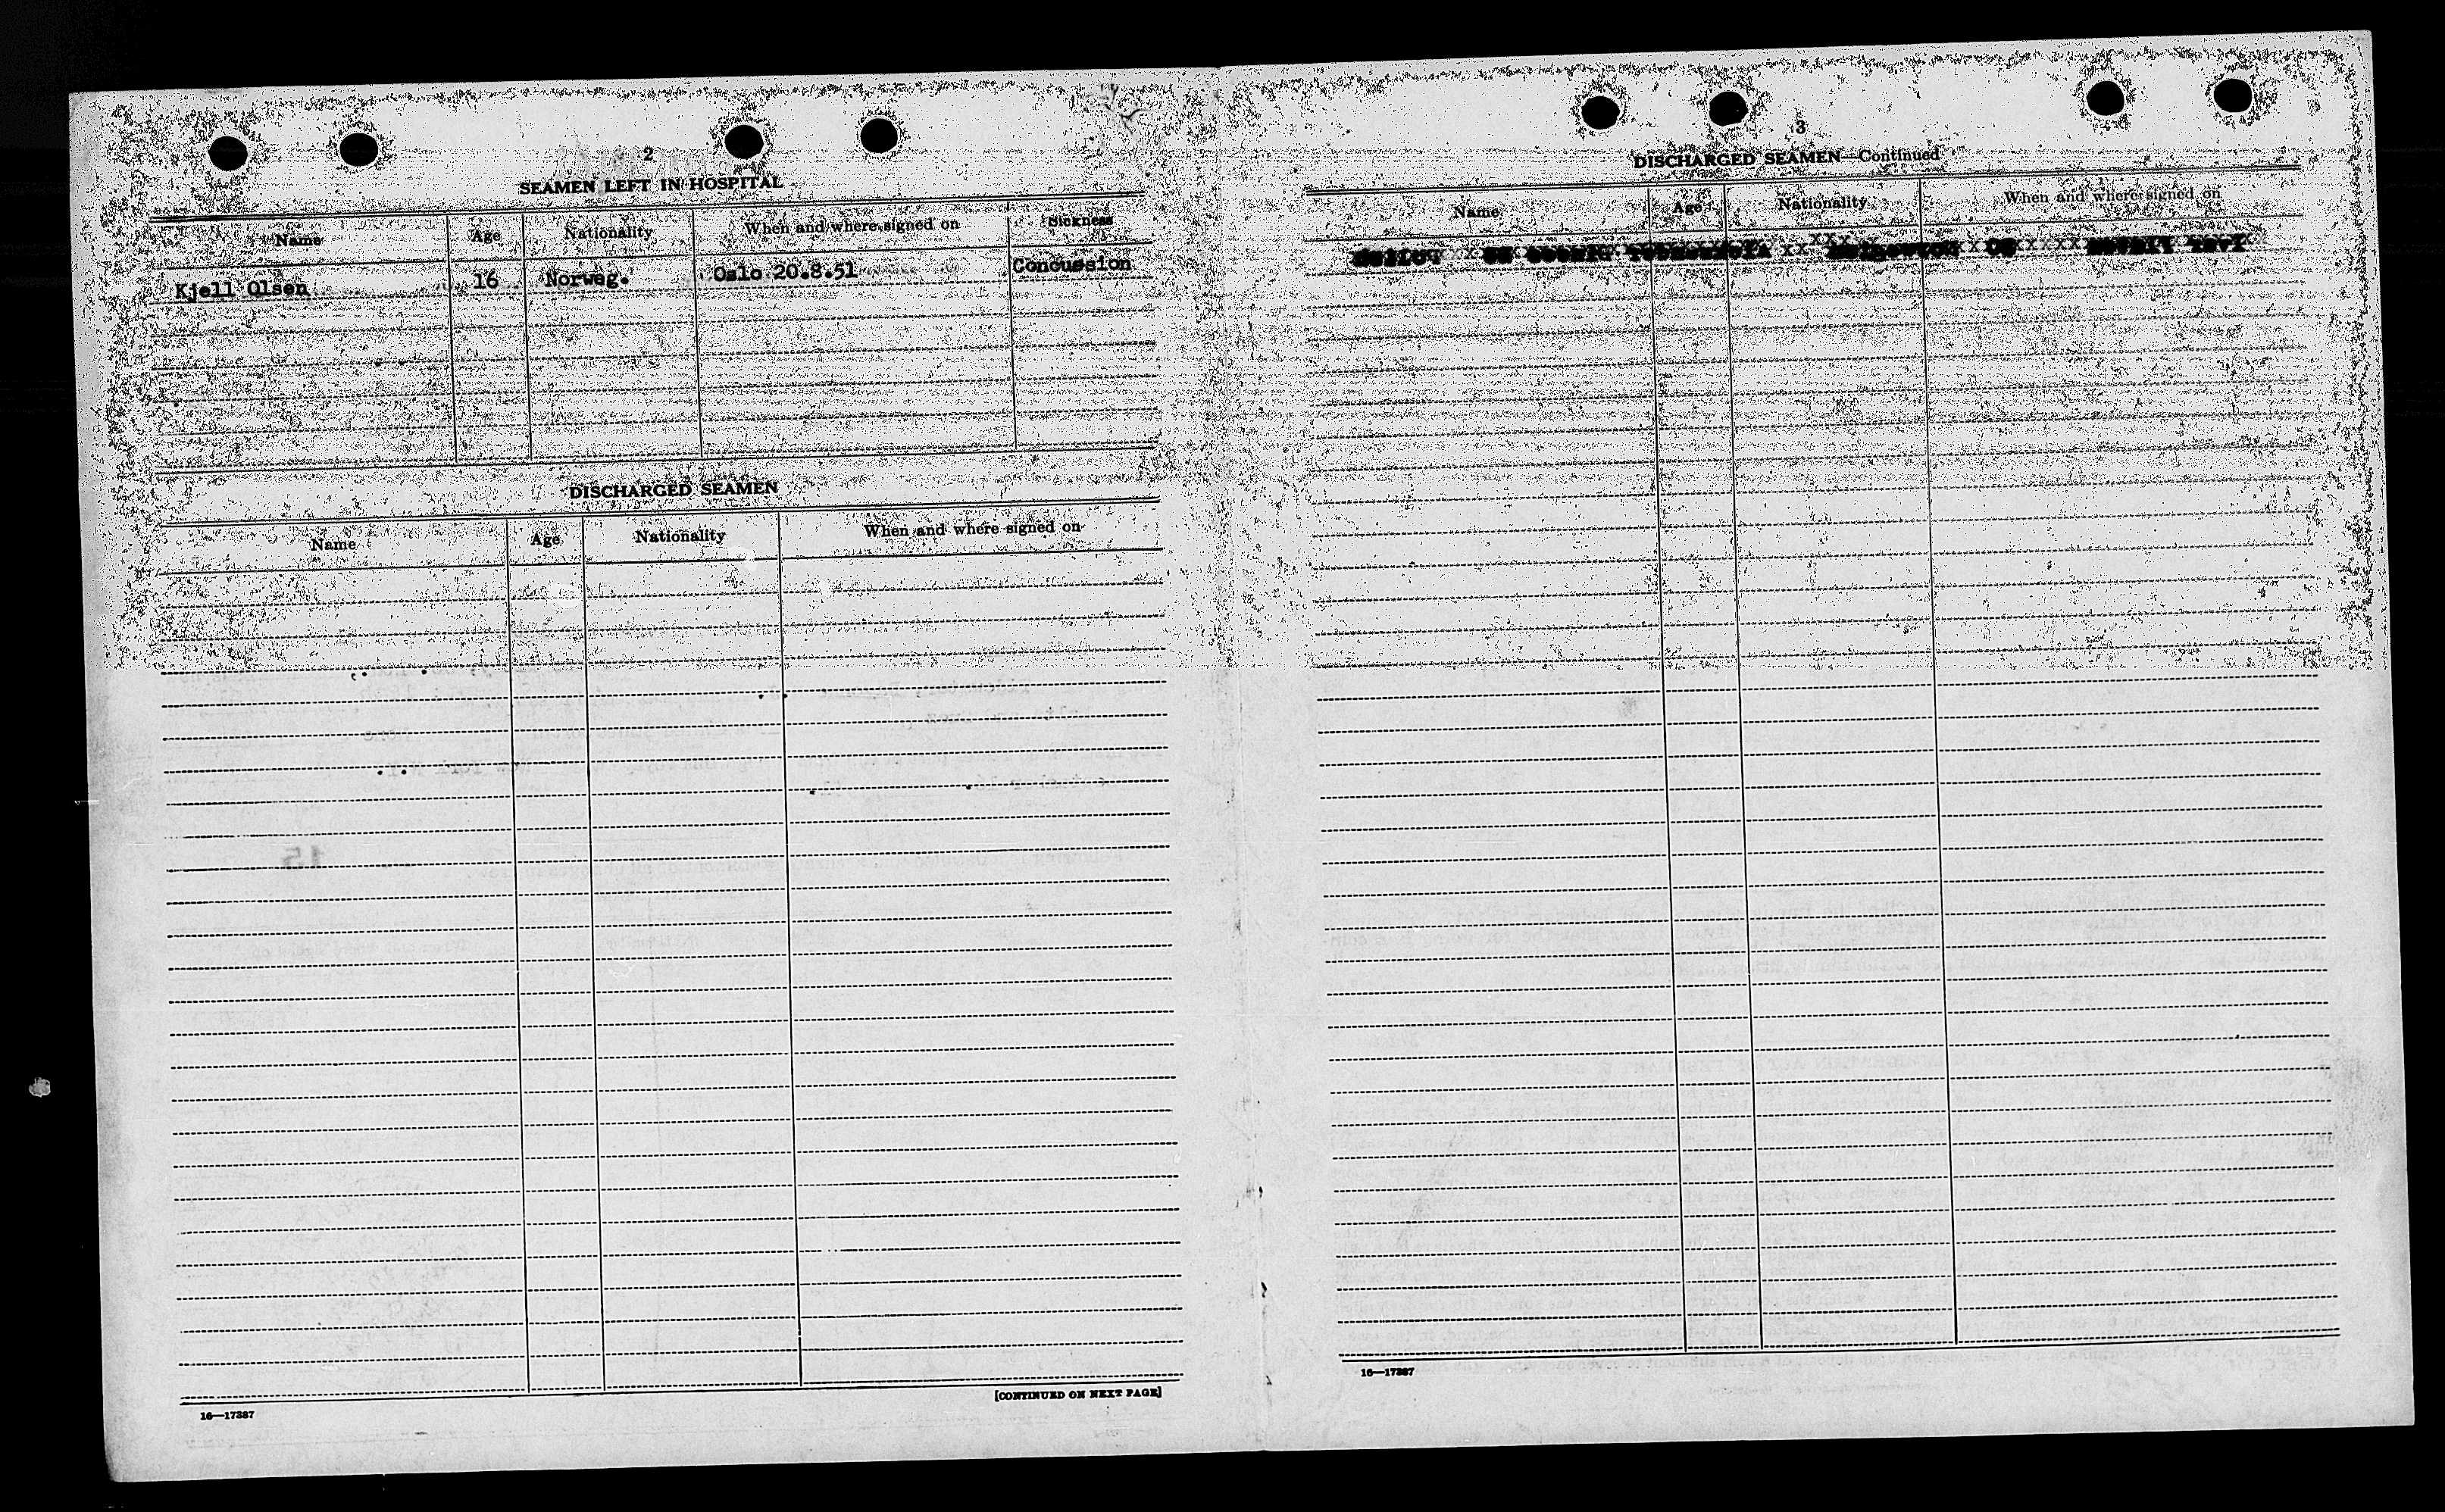 2
SEAMEN LEFT IN HOSPITAL
Name Age Nationality When and where signed on Sickness
Kjell Olsen 16 Norweg. Oslo 20.8.51 Concussion
DISCHARGED SEAMEN
Name Age Nationality When and where signed on
[CONTINUED ON NEXT PAGE]
16—17387
3
DISCHARGED SEAMEN—Continued
Name Age Nationality When and where signed on
16—17387